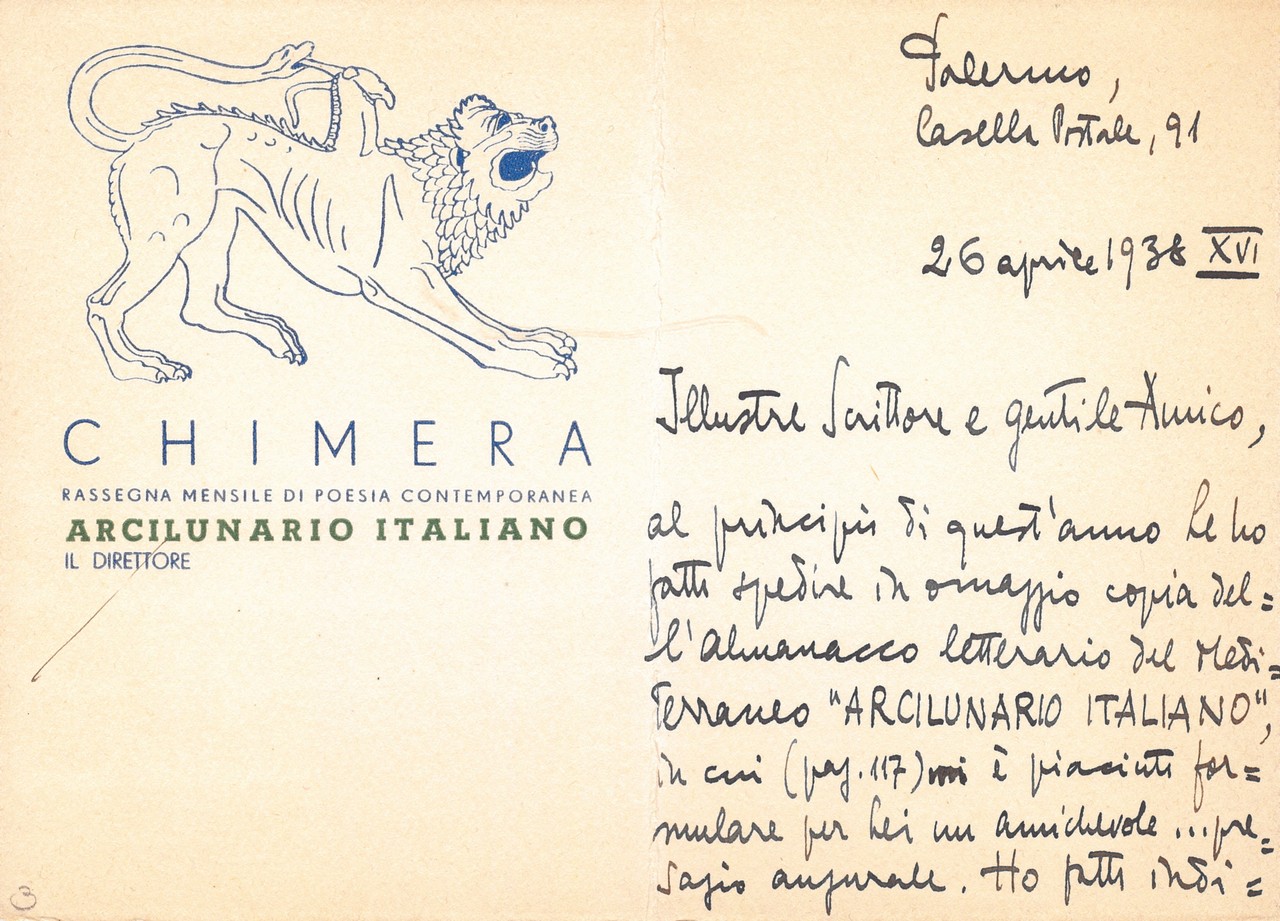 CHIMERA
RASSEGNA MENSILE DI POESIA CONTEMPORANEA
ARCILUNARIO ITALIANO
IL DIRETTORE
3
Palermo,
Casella Postale, 91
26 aprile 1938 XVI
Illustre Scrittore e gentile Amico,
al principio di quest'anno Le ho
fatto spedire in omaggio copia del=
l'Almanacco letterario del Medi=
terraneo "ARCILUNARIO ITALIANO",
in cui (pag. 117) mi è piaciuto for=
mulare per Lei un amichevole ...pre=
sagio augurale. Ho fatto indi=